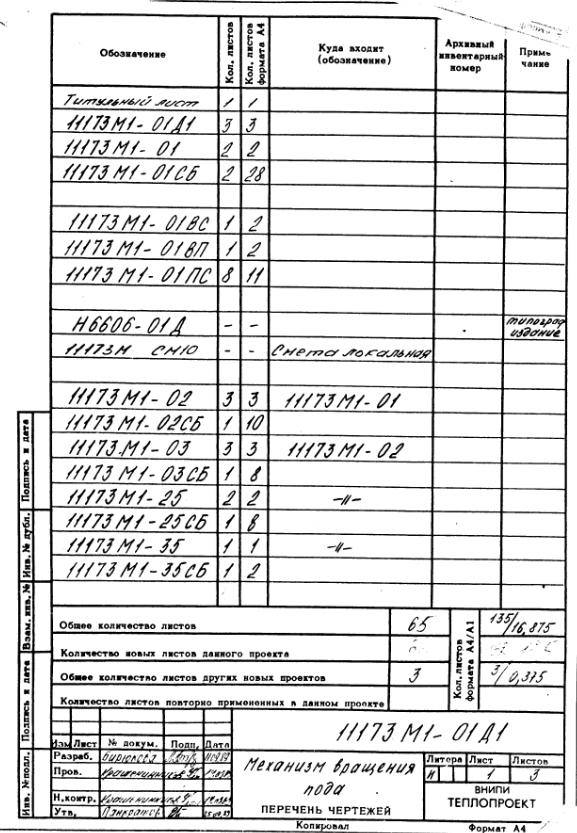 Обозначение Кол. листов Кол. листов формата А4 Куда входит (обозначение) Архивный инвентарный номер Приме чание
Титульный лист 1 1
11173М1-01Д1 3 3
11173М1-01 2 2
11173М1-01СБ 2 28
11173М1-01ВС 1 2
11173М1-01ВП 1 2
11173М1-01ПС 8 11
Н6606-01Д - - типограф издание
11173М СМ10 - - Смета локальная
11173М1-02 3 3 11173М1-01
11173М1-02СБ 1 10
11173М1-03 3 3 11173М1-02
11173М1-03СБ 1 8
11173М1-25 2 2 -〃-
11173М1-25СБ 1 8
11173М1-35 1 1 -〃-
11173М1-35СБ 1 2
Общее количество листов 65 Кол. листов формата А4/А1 135/16,875
Количество новых листов данного проекта
Общее количество листов других новых проектов 3 3/0,375
Количество листов повторно примененных в данном проекте
11173М1-01Д1
Изм Лист № докум. Подп. Дата
Разраб. Бирюкова
Пров.
Н.контр.
Утв.
Механизм вращения
пода
ПЕРЕЧЕНЬ ЧЕРТЕЖЕЙ
Литера Лист Листов
И 1 3
ВНИПИ
ТЕПЛОПРОЕКТ
Копировал Формат А4
Инв. № подл. Подпись и дата Взам. инв. № Инв. № дубл. Подпись и дата